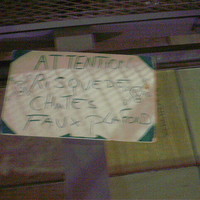 ATTENTION
RISQUE DE
CHUTES
FAUX PLAFOND